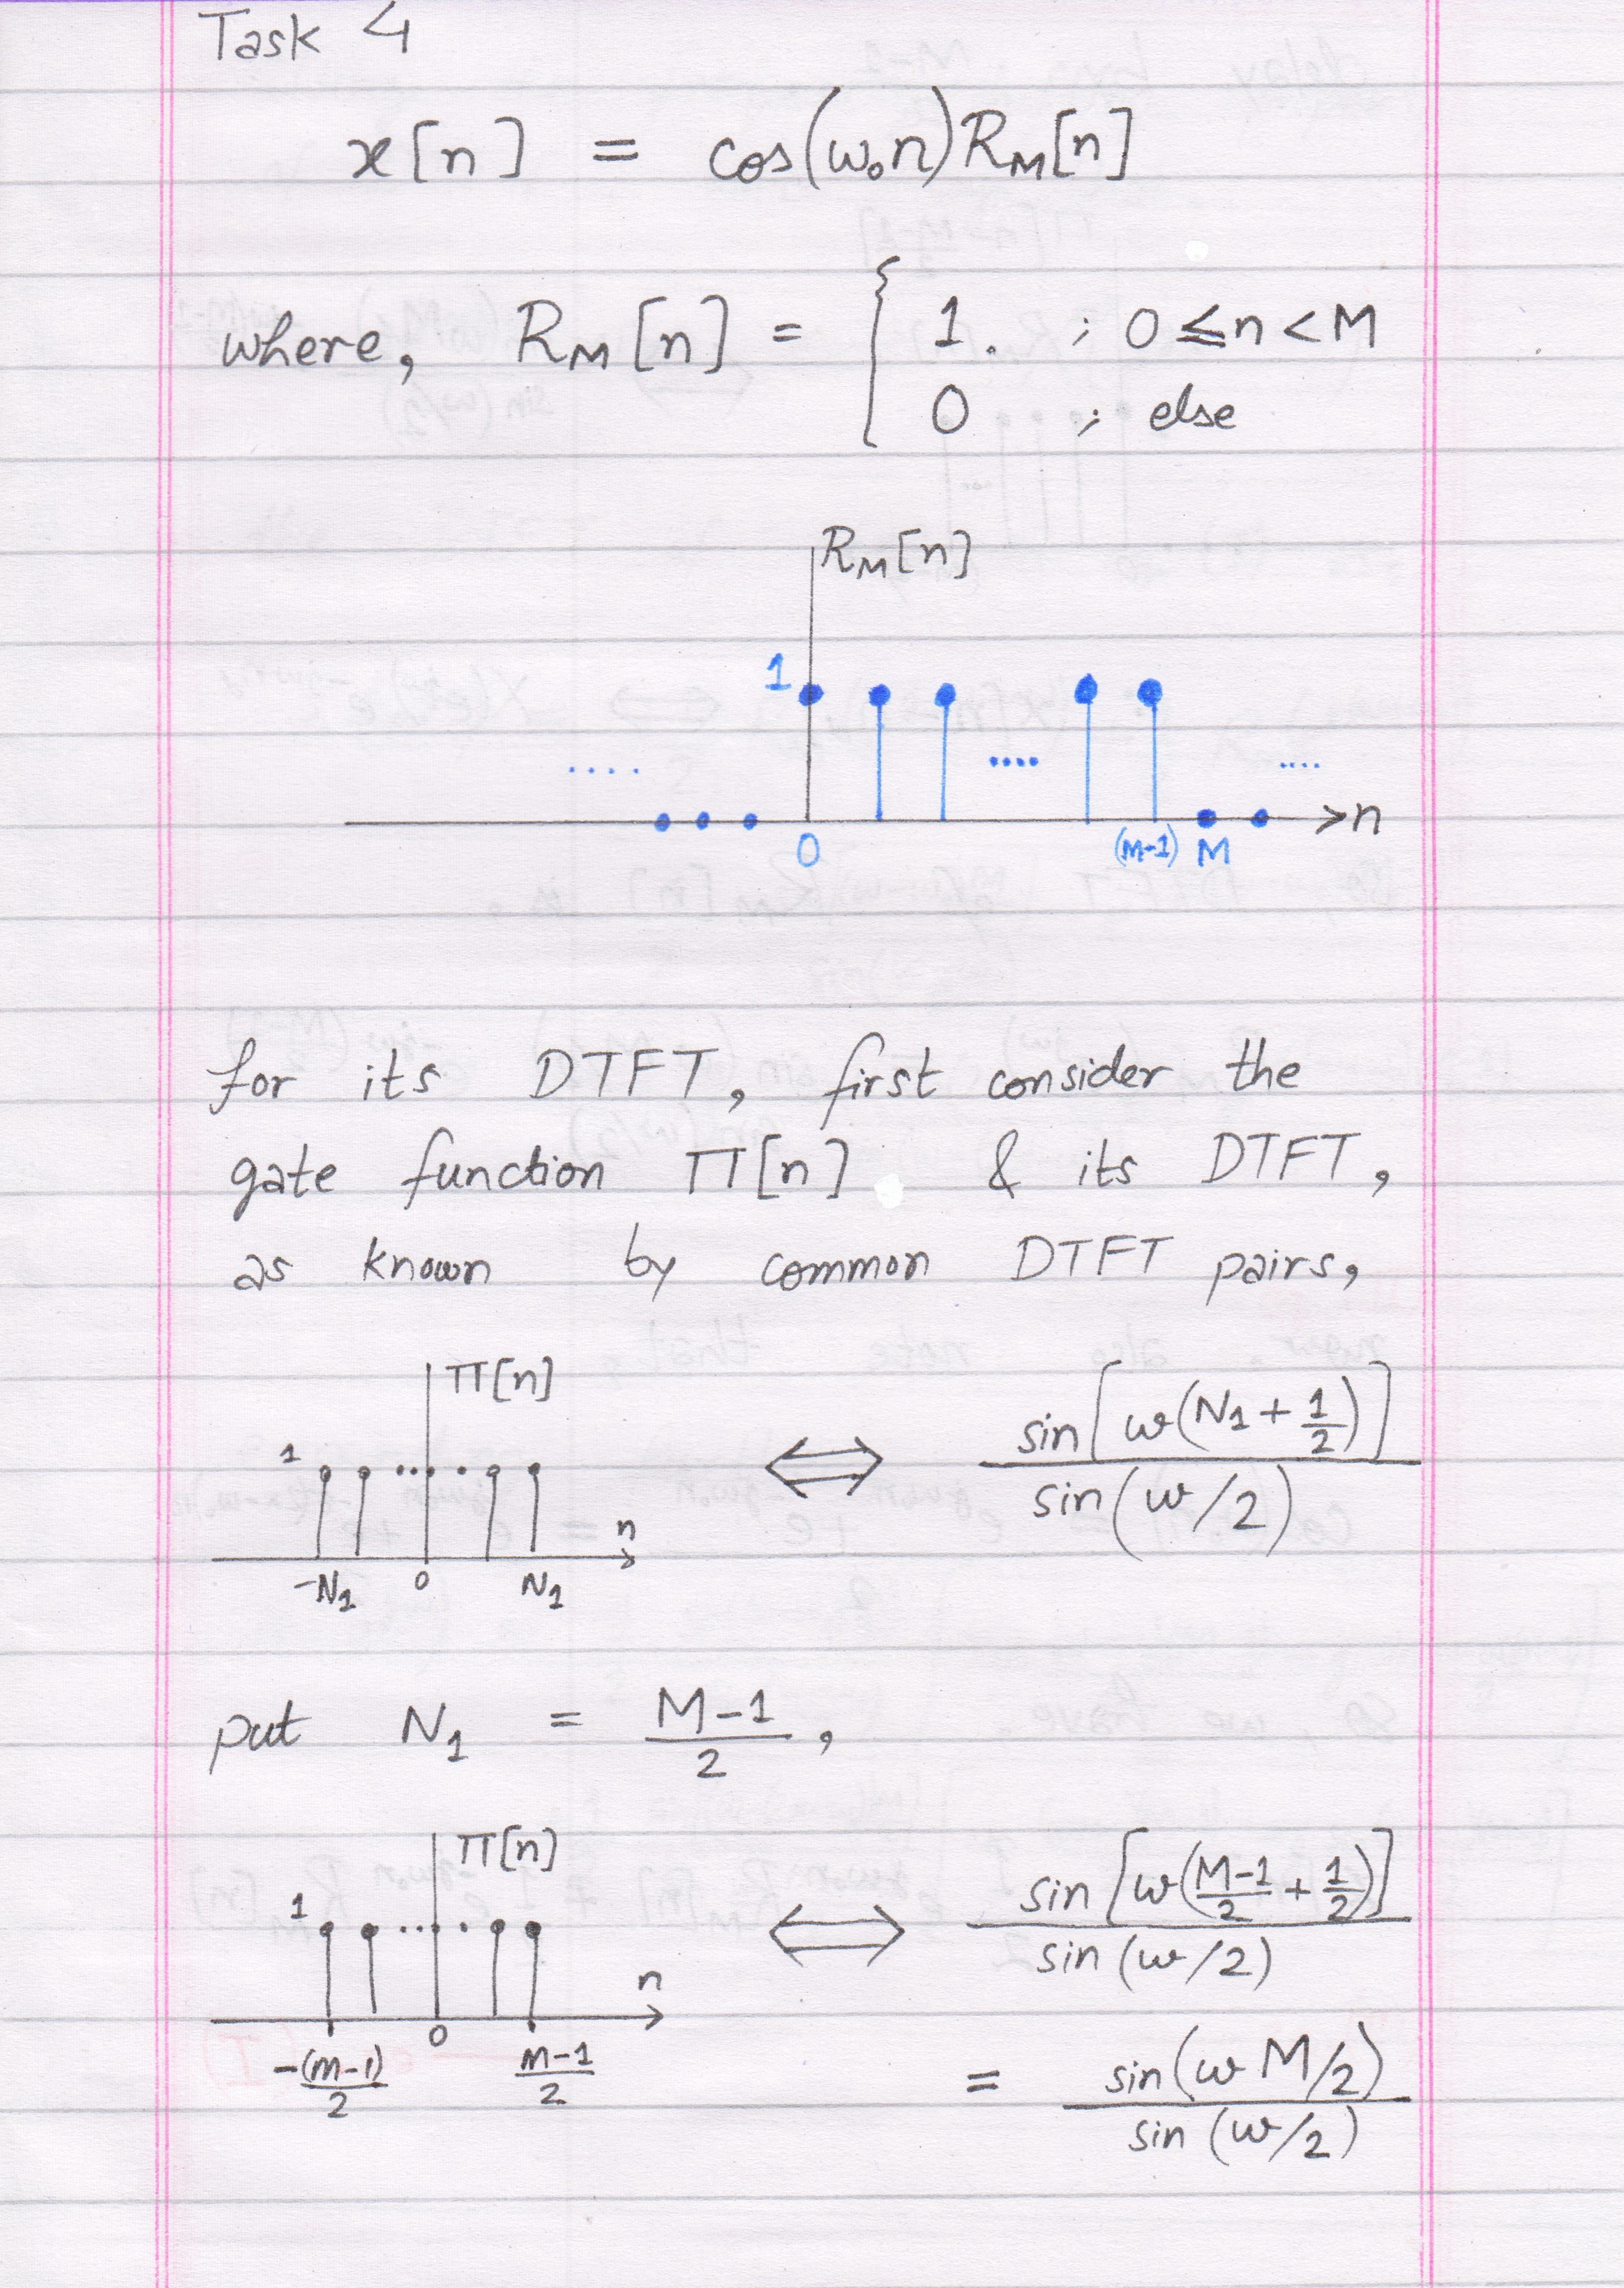 Task 4
x[n] = cos(ω₀n)R_M[n]
where, R_M[n] = { 1. ; 0 ≤ n < M
0 ; else
R_M[n]
1
.... .... ....
0 (M-1) M >n
for its DTFT, first consider the
gate function Π[n] & its DTFT,
as known by common DTFT pairs,
Π[n]
1 ⇔ sin[ω(N₁ + 1/2)] / sin(ω/2)
n
-N₁ 0 N₁
put N₁ = (M-1)/2 ,
Π[n]
1 ⇔ sin[ω(M-1/2 + 1/2)] / sin(ω/2)
n
-(M-1)/2 0 M-1/2
= sin(ωM/2) / sin(ω/2)